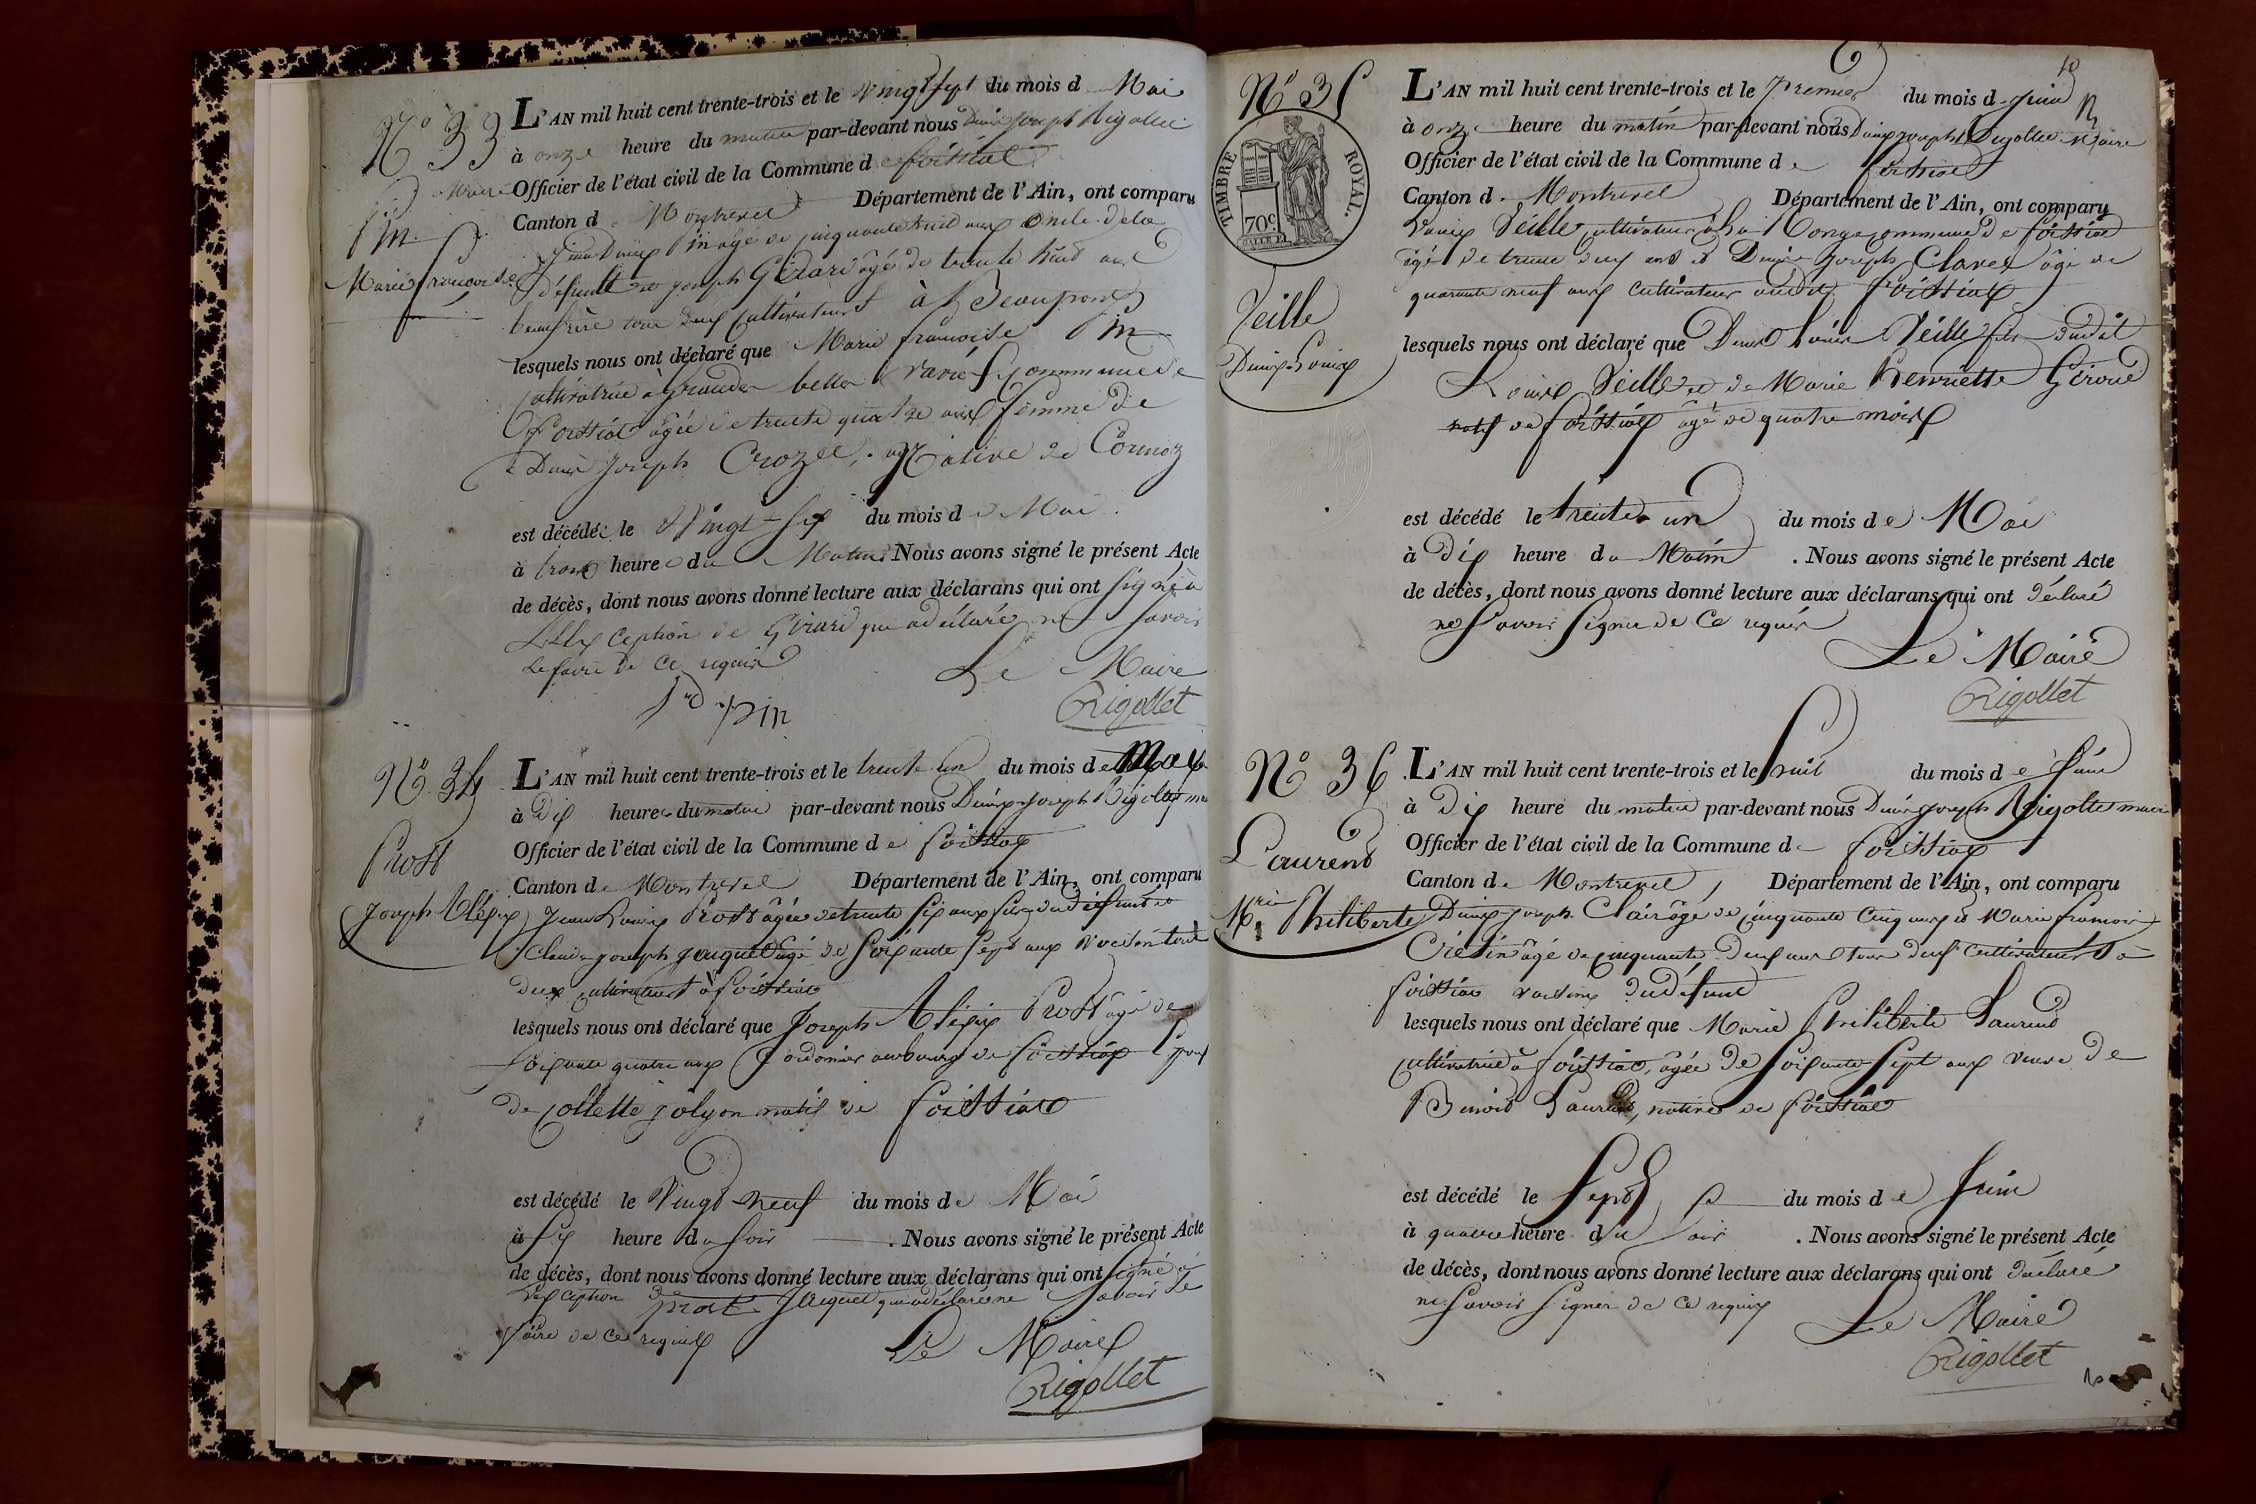 N° 33
Pin
Marie françoise
L'AN mil huit cent trente-trois et le vingt sept du mois d Mai
à onze heure du matin par-devant nous Denis Joseph Rigollet
Maire Officier de l'état civil de la Commune d e foissiat
Canton d e Montrevel Département de l'Ain, ont comparu
Pin âgé de cinquante huit ans oncle de la
défunte et joseph Girard âgé de trente huit ans
beaufrère tous deux cultivateurs à Beaupont
lesquels nous ont déclaré que Marie françoise Pin
cultivatrice à commune de
foissiat âgée de trente quatre ans femme de
Denis Joseph Crozet, Native de Cormoz
est décédée le Vingt Six du mois d e Mai
à trois heure du Matin. Nous avons signé le présent Acte
de décès, dont nous avons donné lecture aux déclarans qui ont signé à
L'Exception de Girard qui a déclaré ne savoir
le faire de ce requis
Le Maire
pin
Rigollet
N° 34
Prost
Joseph Alexis
L'AN mil huit cent trente-trois et le trente un du mois de May
à Dix heures du matin par-devant nous Denis Joseph Rigollet
Officier de l'état civil de la Commune d e foissiat
Canton d e Montrevel Département de l'Ain, ont comparu
Jean Louis Prost âgé de trente six ans fils du défunt et
Claude joseph jacquet âgé de soixante sept ans voisin tout
deux cultivateurs à foissiat
lesquels nous ont déclaré que Joseph Alexis Prost âgé de
soixante quatre ans Cordonier au bourg de foissiat Epoux
de Collette jolyon natif de foissiat
est décédé le Vingt neuf du mois d e Mai
à Six heure du soir. Nous avons signé le présent Acte
de décès, dont nous avons donné lecture aux déclarans qui ont signé à
L'exception de Jacquet qui a déclaré ne savoir le
prost
faire de ce requis
Le Maire
Rigollet
10
N° 35
TIMBRE ROYAL.
70c.
Veille
Denis Louis
L'AN mil huit cent trente-trois et le Premier du mois d e Juin
à onze heure du matin par-devant nous Denis joseph Rigollet Maire
Officier de l'état civil de la Commune d e foissiat
Canton d e Montrevel Département de l'Ain, ont comparu
Louis Veille cultivateur à La commune de foissiat
âgé de trente deux ans et Denis Joseph Clavel âgé de
quarante neuf ans cultivateur audit foissiat
lesquels nous ont déclaré que Denis Louis Veille fils dudit
Louis Veille et de Marie Henriette Géroud
natif de foissiat âgé de quatre mois
est décédé le trente un du mois d e Mai
à Dix heure du Matin. Nous avons signé le présent Acte
de décès, dont nous avons donné lecture aux déclarans qui ont déclaré
ne savoir signer de ce requis
Le Maire
Rigollet
N° 36
Laurend
Mrie Philiberte
L'AN mil huit cent trente-trois et le huit du mois d e Juin
à Dix heure du matin par-devant nous Denis Joseph Rigollet maire
Officier de l'état civil de la Commune d e foissiat
Canton d e Montrevel, Département de l'Ain, ont comparu
Denis joseph Clair âgé de cinquante cinq ans et Marie françois
âgé de cinquante deux ans tous deux cultivateurs à
foissiat voisins du défunt
lesquels nous ont déclaré que Marie Philiberte Laurend
cultivatrice à foissiat, âgée de soixante sept ans veuve de
Benoit Laurend, native de foissiat
est décédé le Sept du mois d e Juin
à quatre heure du soir. Nous avons signé le présent Acte
de décès, dont nous avons donné lecture aux déclarans qui ont déclaré
ne savoir signer de ce requis
Le Maire
Rigollet